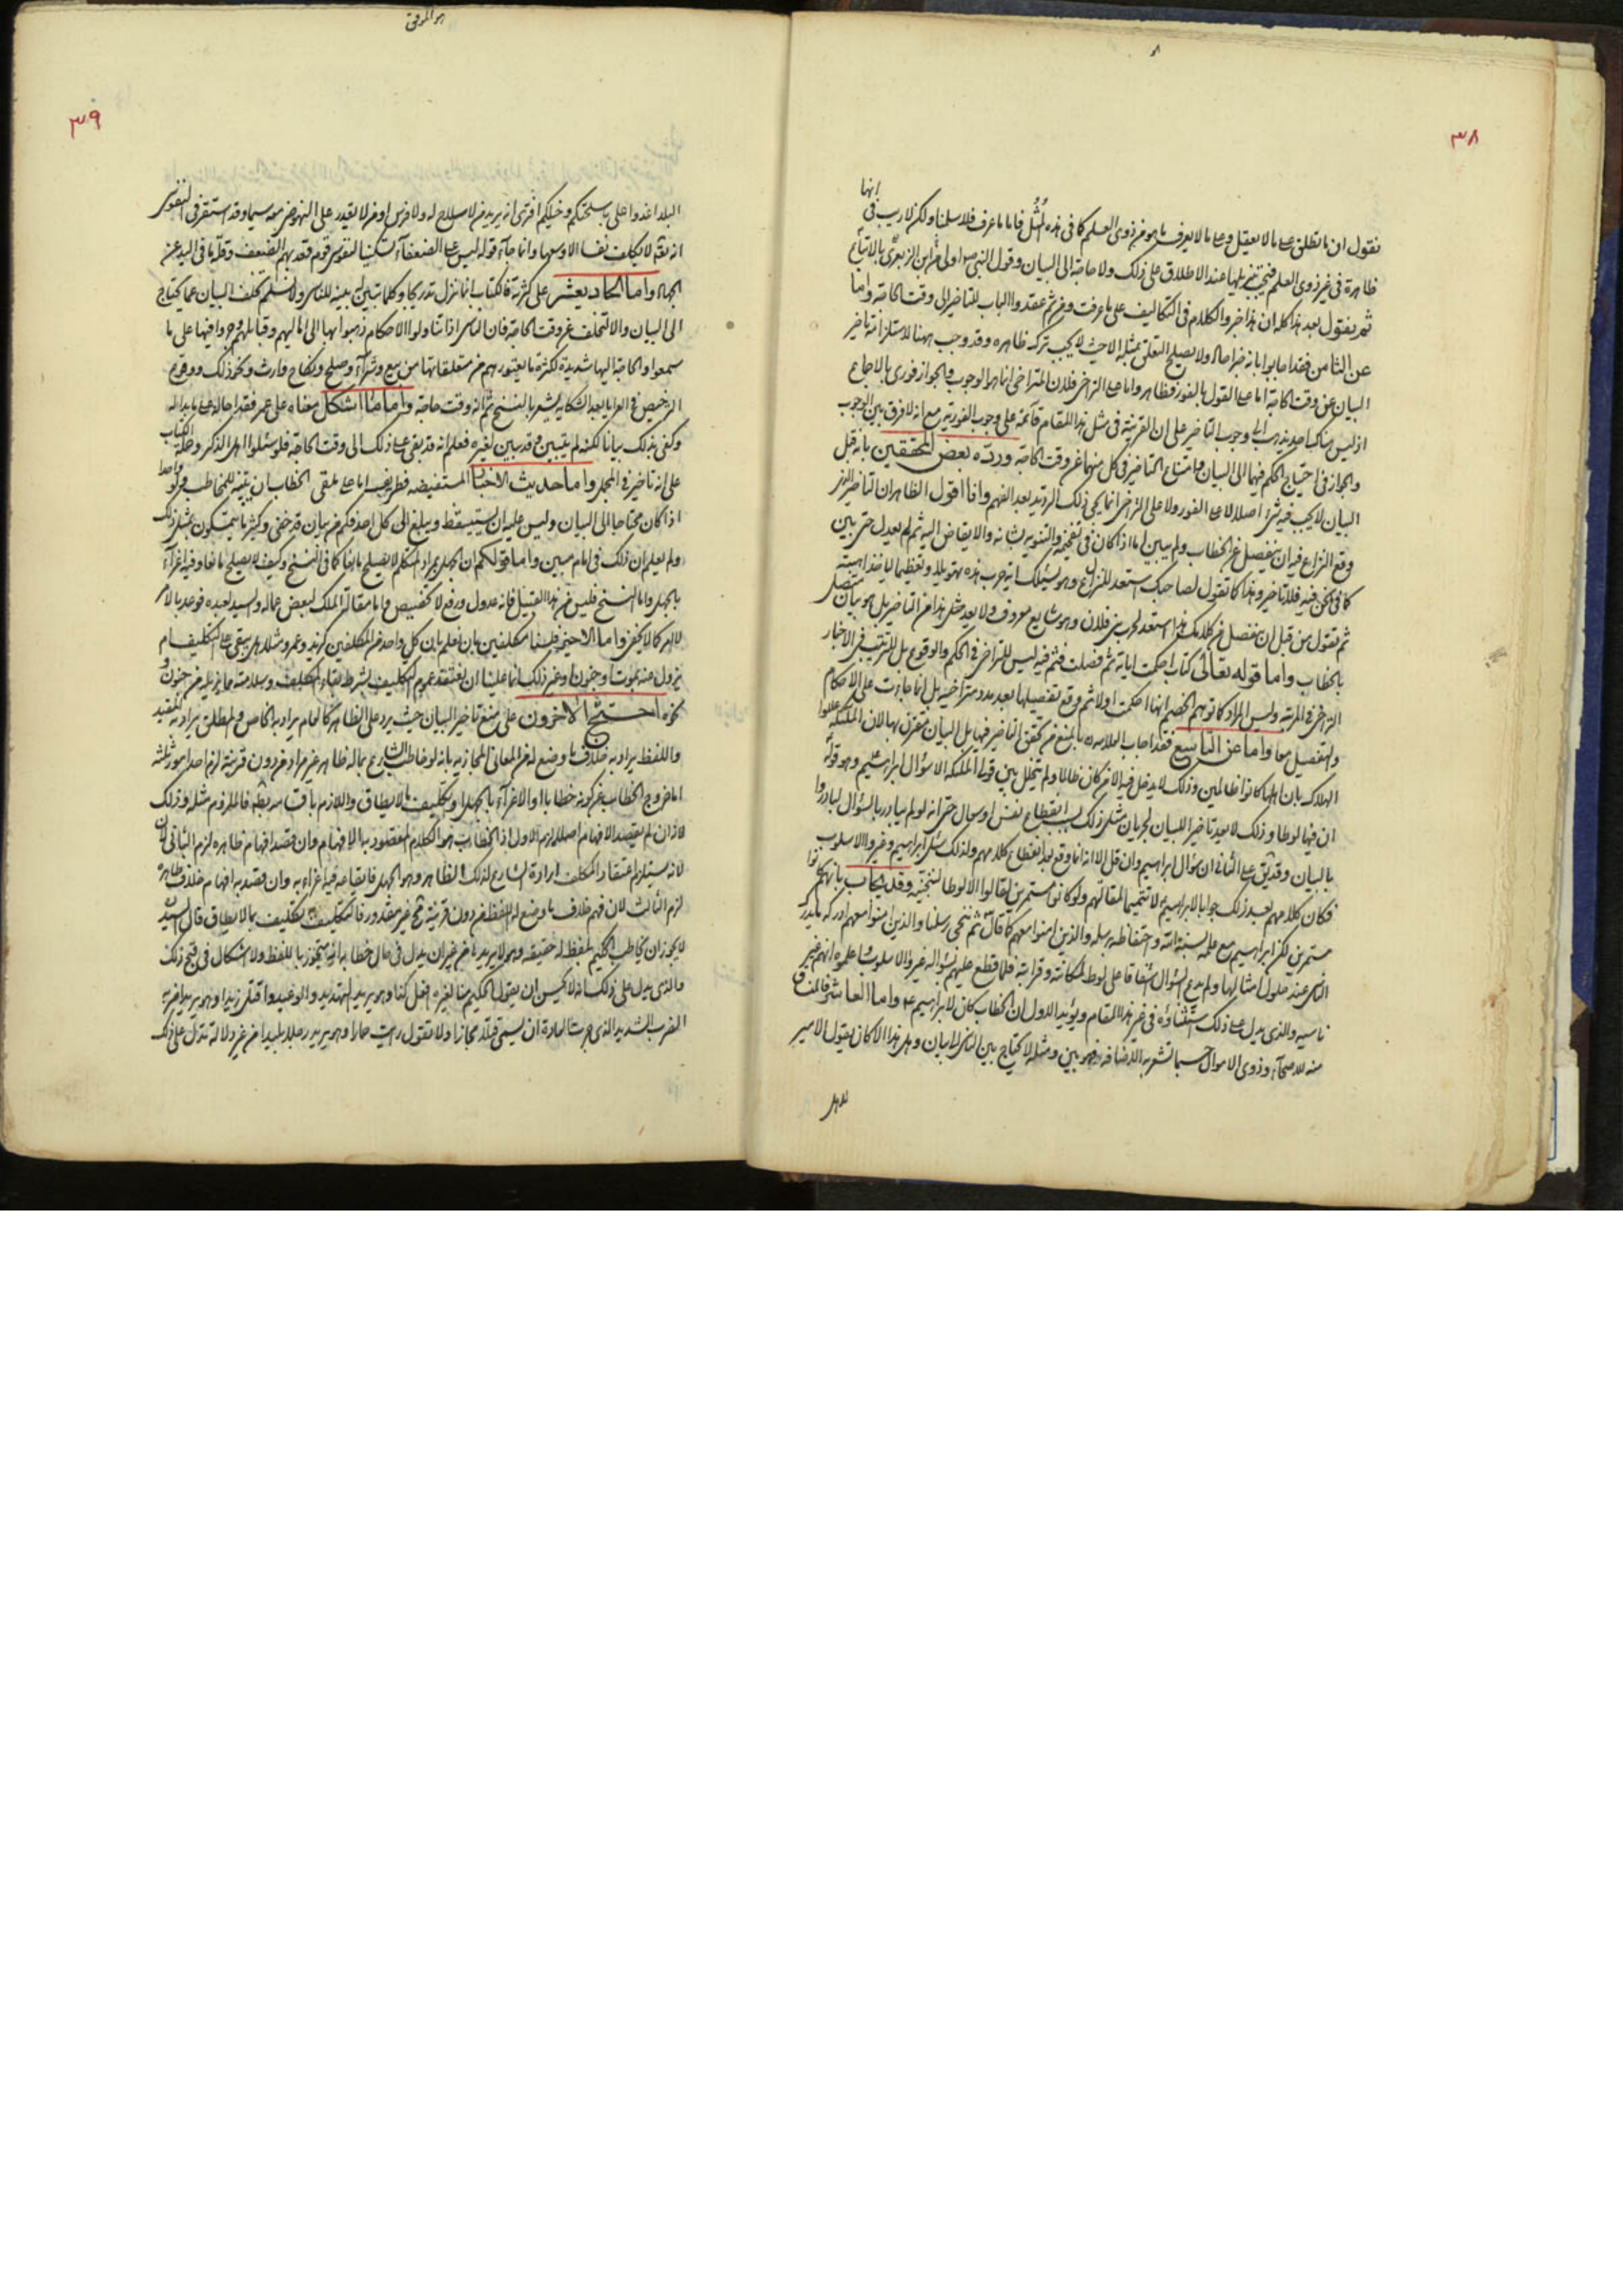 ٣٨
انها
نقول ان ما تطلق على ما لا يعقل وعلى ما لا يعرف ما هو من ذوى العلم كما فى هذه المثل فاما ما عرف فلا سلمنا ولكن لا ريب فى
ظاهرة فى غير ذوى العلم فيجب تنزيلها عند الاطلاق على ذلك ولا حاجة الى البيان وقول النبى اولى من ابن الزبعرى بالاتباع
ثم نقول بعد هذا كله ان هذا خبر والكلام فى التكاليف على ما عرفت ومن ثم عقدوا الباب للتاخير الى وقت الحاجة واما
عن الثامن فقد اجابوا بانه خبر احاد ولا يصلح التعلق بمثله الا حيث لا يجب ترك ظاهره وقد وجب ههنا لاستلزامه تاخير
البيان عن وقت الحاجة اما على القول بالفور فظاهر واما على التراخى فلان المتراخى انما هو الوجوب والجواز فورى بالاجماع
اذ ليس هناك احد يذهب الى وجوب التاخير على ان القرينة فى مثل هذا المقام قائمة على وجوب الفورية مع انه لا فرق بين الوجوب
والجواز فى احتياج الحكم فيهما الى البيان وامتناع التاخير فى كل منهما عن وقت الحاجة ورده بعض المحققين بانه قبل
البيان لا يجب فيه شئ اصلا لا على الفور ولا على التراخى انما يجئ ذلك التردد بعد الفهم وانا اقول الظاهر ان التاخير الذى
وقع النزاع فيه ان ينفصل عن الخطاب ولم يبين اما اذا كان فى تفخيمه والتنويه بشانه والايقاض اليه ثم لم يعدل حتى بين
كما فى نحن فيه فلا تاخير وهذا كما تقول لصاحبك استعد للنزاع وهو يسئلك اية حرب هذه تهويلا وتعظيما لياخذ اهبته
ثم تقول من قبل ان تنفصل عن كلامك هذا استعد لحرب بنى فلان وهو شايع معروف ولا يعد مثل هذا من التاخير بل هو بيان متصل
بالخطاب واما قوله تعالى كتاب احكمت اياته ثم فصلت فثم فيه ليس للتراخى فى الحكم والوقوع بل للترتيب فى الاخبار
التراخى فى المرتبة وليس المراد كما توهم الخصم انها احكمت اولا ثم وقع تفصيلها بعد مدد متراخية بل انما جاءت على الاحكام
والتفصيل معا واما عن التاسع فقد اجاب العلامة بالمنع من تحقق التاخير فيها بل البيان مقترن بها لان الملئكة عللوا
الهلاك بان اهلها كانوا ظالمين وذلك لا يدخل فيه الا من كان ظالما ولم يتخلل بين قول الملئكة الا سؤال ابراهيم وهو قوله
ان فيها لوطا وذلك لا يعد تاخيرا للبيان لجريان مثل ذلك بسبب انقطاع نفس او سعال حتى انه لو لم يبادر بالسؤال لبادروا
بالبيان وقد يق على الثانى ان سؤال ابراهيم وان قل الا انه انما وقع بعد انقطاع كلامهم ولذلك سئل ابراهيم وغيروا الاسلوب
فكان كلامهم بعد ذلك جوابا لابراهيم لا تتميما لمقالتهم ولو كانوا مستمرين لقالوا الا لوطا لننجينه وقد يجاب بانهم كانوا
مستمرين لكن ابراهيم مع علمه بسنة الله واحتفاظه برسله والذين امنوا معهم كما قال ثم ننجى رسلنا والذين امنوا معهم ادركه ما يدرك
الناس عند حلول امثالها ولم يدع السؤال اشفاقا على لوط لمكانته وقرابته فلما قطع عليهم بسؤاله غيروا الاسلوب ما علموه انهم غير
ناسيه والذى يدل على ذلك استثناؤه فى غير هذا المقام ويؤيد الاول ان الخطاب كان لابراهيم واما العاشر فالمنساق
منه للاصحاء وذوى الاموال حسبما تشعر به الاضافة فهو بين ومثله لا يحتاج بين الناس الى بيان وهل هذا الا كان يقول الامير
لاهل
هو الموفق
٣٩
البلد اغدوا على باسلحتكم وخيلكم افترى انه يريد من لا سلاح له ولا فرس او من لا يقدر على النهوض معه سيما وقد استقر فى النفوس
انه تعالى لا يكلف نفسا الا وسعها وانما جاء قوله ليس على الضعفاء تسكينا لنفوس قوم قعد بهم الضعف وقلة ما فى اليد عن
الجهاد واما الحاد يعشر على كثرته فالكتاب انما نزل تدريجا وكلما تبين بينه للناس ولا نسلم تخلف البيان عما يحتاج
الى البيان والا لتخلف عن وقت الحاجة فان الناس اذا تناولوا الاحكام ذهبوا بها الى اهاليهم وقبايلهم وجروا فيها على ما
سمعوا والحاجة اليها شديدة لكثرة ما يعتورهم من متعلقاتها من بيع وشراء وصلح ونكاح وارث ونحو ذلك ووقوع
الترخيص فى العرايا بعد الشكاية يشعر بالنسخ ثم انه وقت حاجة واما ما اشكل معناه على عمر فقد احاله على ما بدا له
وكفى بذلك بيانا لكنه لم يتبين وقد يبين لغيره فعلم انه قد بقى على ذلك الى وقت الحاجة فلو سئلوا اهل الذكر وحملة الكتاب
على انه تاخير فى المجمل واما حديث الاخبار المستفيضة فطريف انما على ملقى الخطاب ان يبينه للمخاطب ولو واحدا
اذا كان محتاجا الى البيان وليس عليه ان يستيقظ ويبلغ الى كل احد فكم من بيان قد خفى وكثيرا ما يتمسكون بمثل ذلك
ولم يعلم ان ذلك فى امام مبين واما قولكم ان الجهل بمراد المتكلم لا يصلح مانعا كما فى النسخ وكيف لا يصلح مانعا وفيه اغراء
بالجهل واما النسخ فليس من هذا القبيل فانه عدول ورفع لا تخصيص واما مقالة الملك لبعض عماله والسيد لعبده فوعد بالامر
لا امر كما لا يخفى واما الاخير فلسنا مكلفين بان نعلم بان كل واحد من المكلفين كزيد وعمرو مثلا هل يبقى على التكليف ام
يزول عنه بموت او جنون او غير ذلك انما علينا ان نعتقد عموم التكليف بشرط بقاء المكلف وسلامته مما يزيله من جنون و
نحوه احتج الاخرون على منع تاخير البيان حيث يرد على الظاهر كالعام يراد به الخاص والمطلق يراد به المقيد
واللفظ يراد به خلاف ما وضع له من المعانى المجازية بانه لو خاطب الشارع بماله ظاهر غير مراد من دون قرينة لزم احد امور ثلثة
اما خروج الخطاب عن كونه خطابا او الاغراء بالجهل او تكليف ما لا يطاق واللازم باقسامه بط فالملزوم مثله وذلك
لانه ان لم يقصد الافهام اصلا لزم الاول اذ الخطاب هو الكلام المقصود به الافهام وان قصد افهام ظاهره لزم الثانى
لانه يستلزم اعتقاد المكلف ارادة الشارع لذلك الظاهر وهو الجهل فايقاعه فيه اغراء به وان قصد به افهام خلاف ظاهره
لزم الثالث لان فهم خلاف ما وضع له اللفظ من دون قرينة غير مقدور فالتكليف به تكليف بما لا يطاق قال السيد
لا يجوز ان يخاطب الحكيم بلفظ له حقيقة وهو لا يريدها من غير ان يدل فى حال خطابه انه متجوز باللفظ ولا اشكال فى قبح ذلك
والذى يدل على ذلك انه لا يحسن ان يقول الحكيم منا لغيره افعل كذا وهو يريد التهديد والوعيد او اقتل زيدا وهو يريد اضربه
الضرب الشديد الذى جرت العادة ان يسمى قتلا مجازا ولا تقول رايت حمارا وهو يريد رجلا بليدا من غير دلالة تدل على ذلك